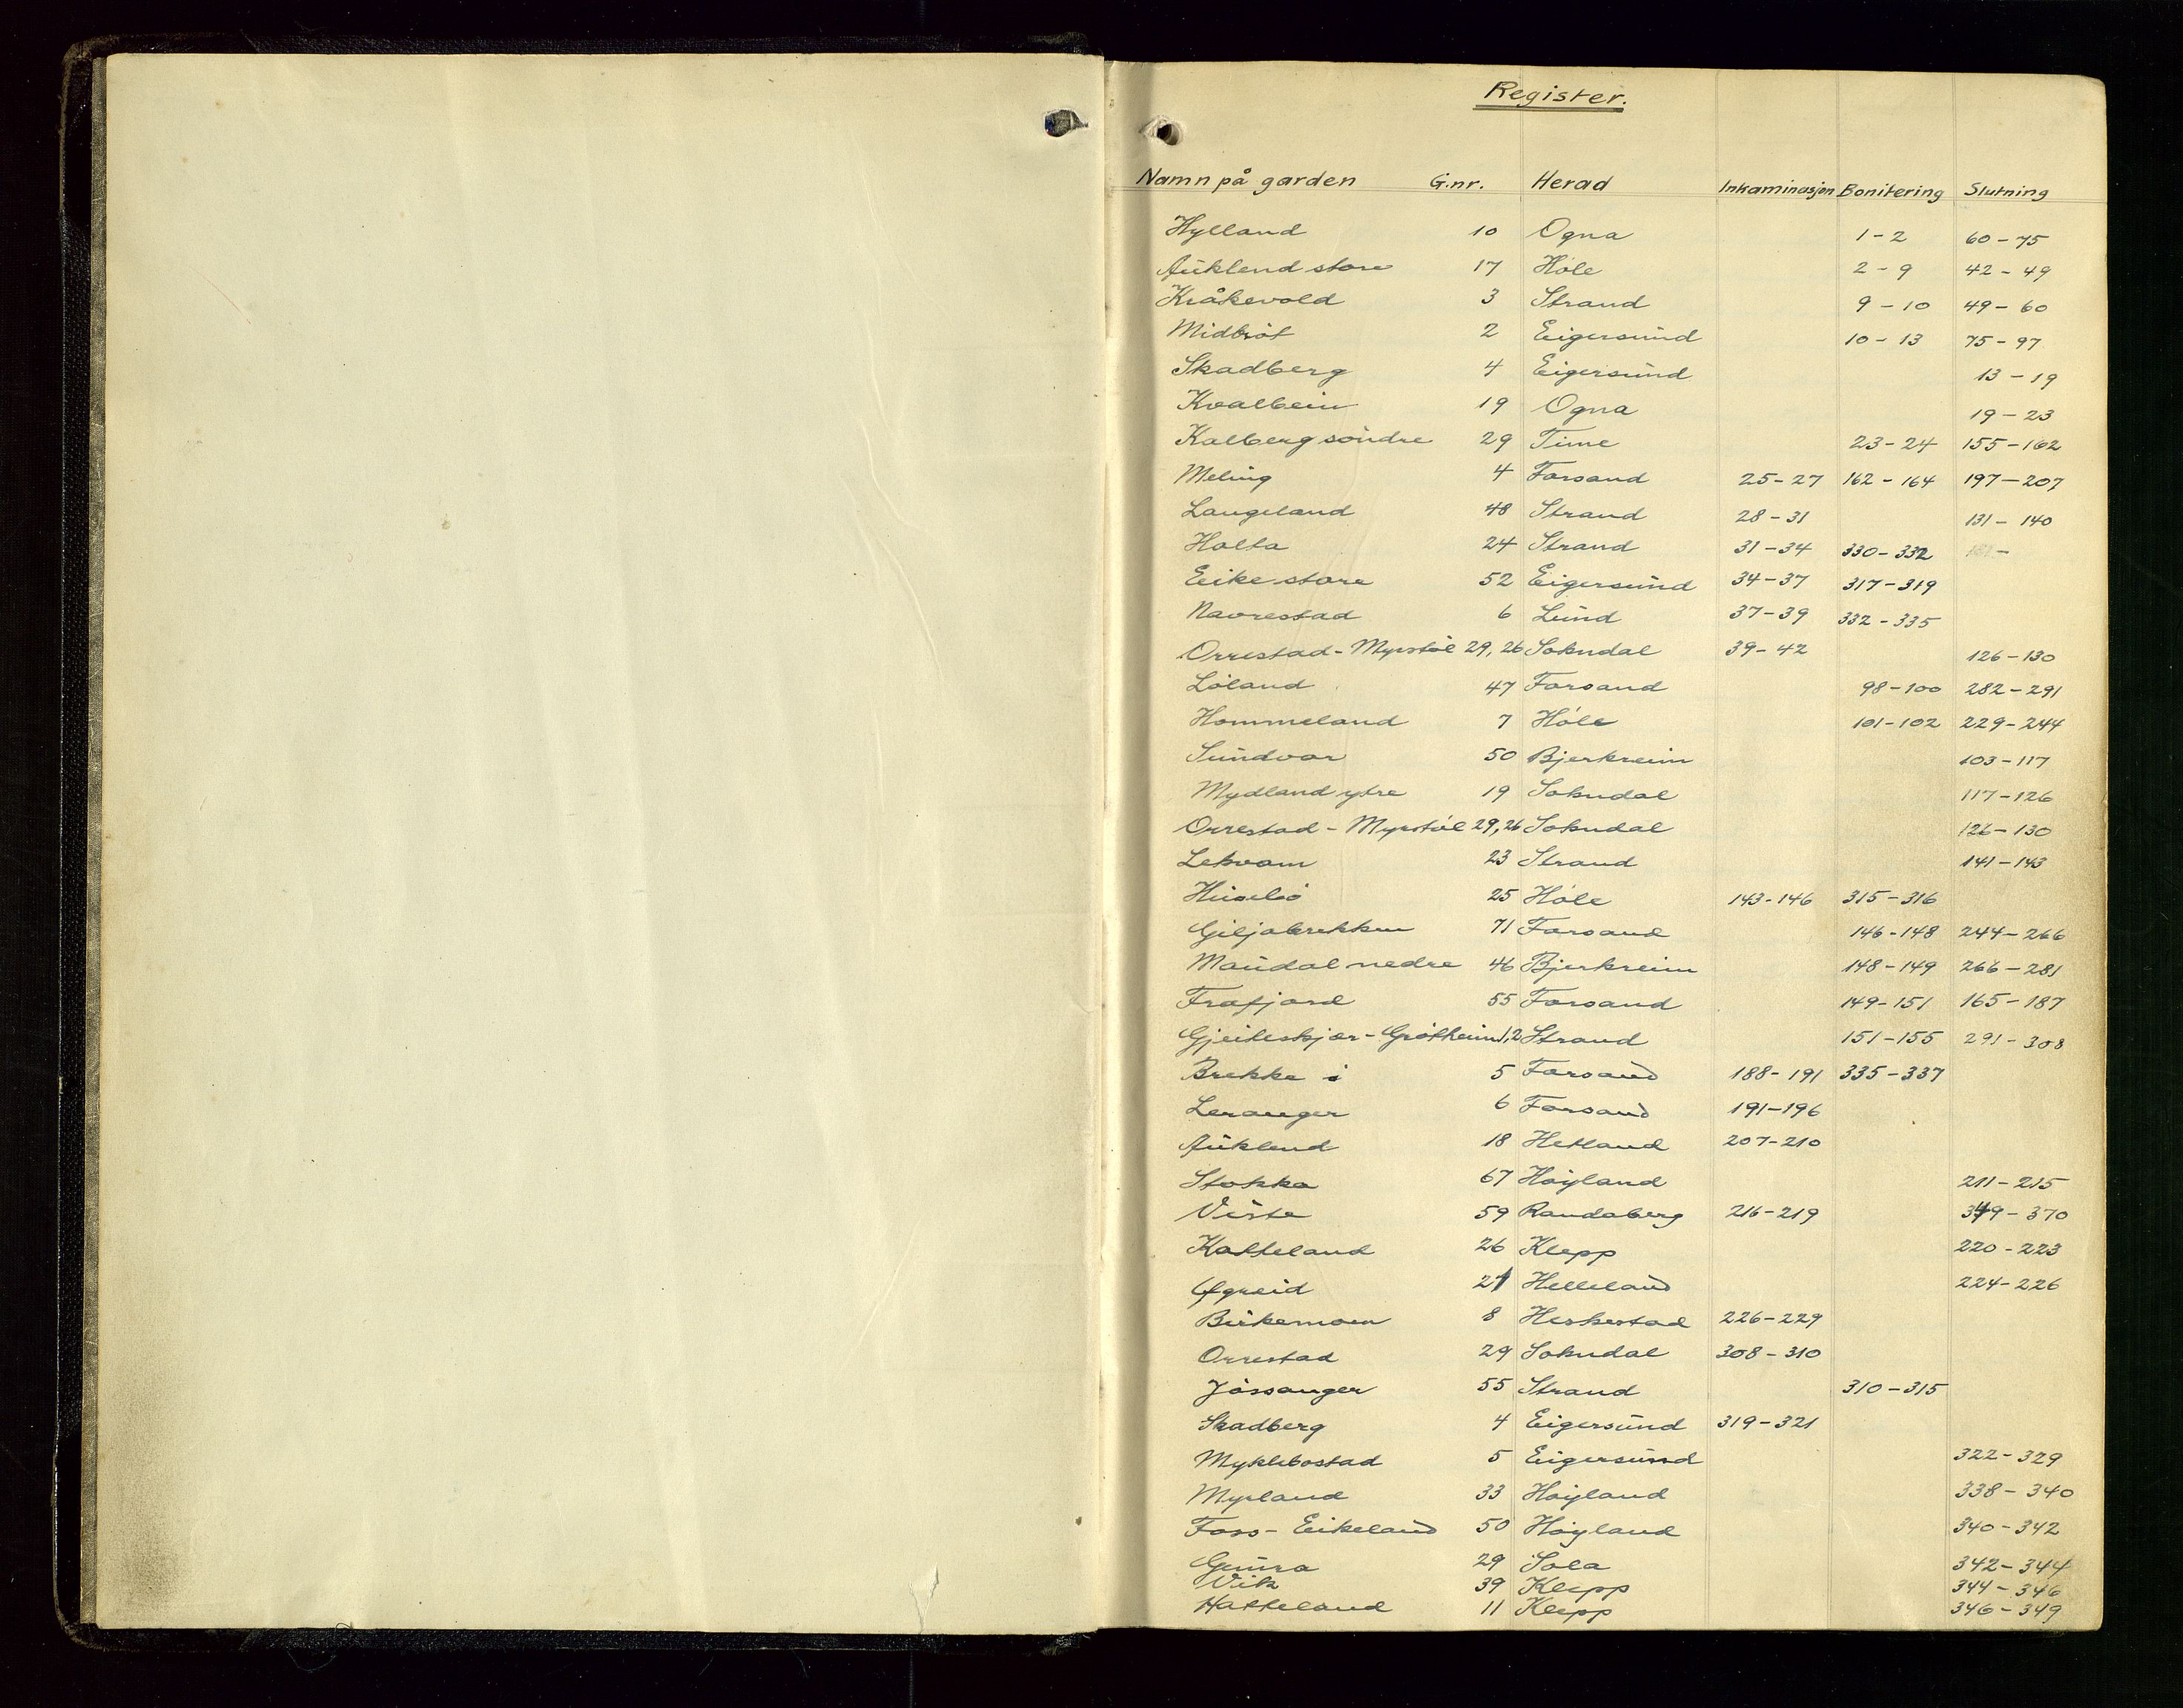 Register.
Namn på garden G.nr. Herad Inkaminasjon Bonitering Slutning
Hylland 10 Ogna 1-2 60-75
Aüklend store 17 Høle 2-9 42-49
Kråkevold 3 Strand 9-10 49-60
Midbrøt 2 Eigersünd 10-13 75-97
Skadberg 4 Eigersünd 13-19
Kvalbein 19 Ogna 19-23
Kalberg söndre 29 Time 23-24 155-162
Meling 4 Forsand 25-27 162-164 197-207
Langeland 48 Strand 28-31 131-140
Holta 24 Strand 31-34 330-332
Eike store 52 Eigersünd 34-37 317-319
Navrestad 6 Lünd 37-39 332-335
Orrestad-Myrstøl 29,26 Sokndal 39-42 126-130
Løland 47 Forsand 98-100 282-291
Hommeland 7 Høle 101-102 229-244
Sündvor 50 Bjerkreim 103-117
Mydland ytre 19 Sokndal 117-126
Orrestad-Myrstøl 29,26 Sokndal 126-130
Lekvam 23 Strand 141-143
25 Høle 143-146 315-316
Giljabrekken 71 Forsand 146-148 244-266
Maüdal nedre 46 Bjerkreim 148-149 266-281
Frafjord 55 Forsand 149-151 165-187
Gjeiteskjær-Grøtheim 1,2 Strand 151-155 291-308
Brekke i 5 Forsand 188-191 335-337
Leranger 6 Forsand 191-196
Aüklend 18 Hetland 207-210
Stokka 67 Høyland 211-215
Viste 59 Randaberg 216-219 349-370
Katteland 26 Klepp 220-223
Øgreid 21 Helleland 224-226
Birkemoen 8 Heskestad 226-229
Orrestad 29 Sokndal 308-310
Jøssanger 55 Strand 310-315
Skadberg 4 Eigersünd 319-321
Myklebostad 5 Eigersünd 322-329
Myrland 33 Høyland 338-340
Foss-Eikeland 50 Høyland 340-342
29 Sola 342-344
Vik 39 Klepp 344-346
Hatteland 11 Klepp 346-349